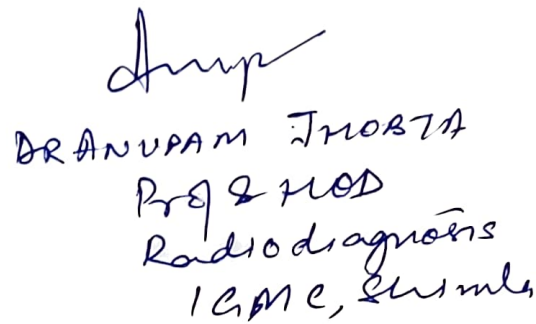 Anup
DR ANUPAM JHOBTA
Prof & HOD
Radiodiagnosis
IGMC, Shimla